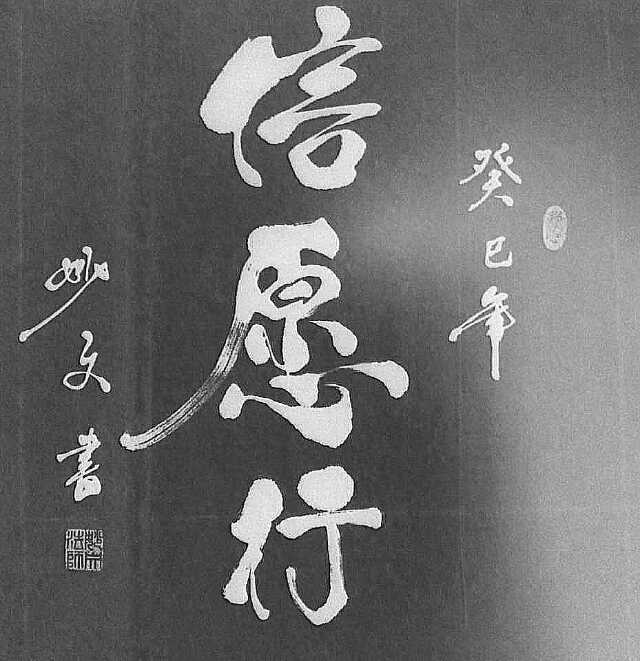 癸巳年
信愿行
妙文书